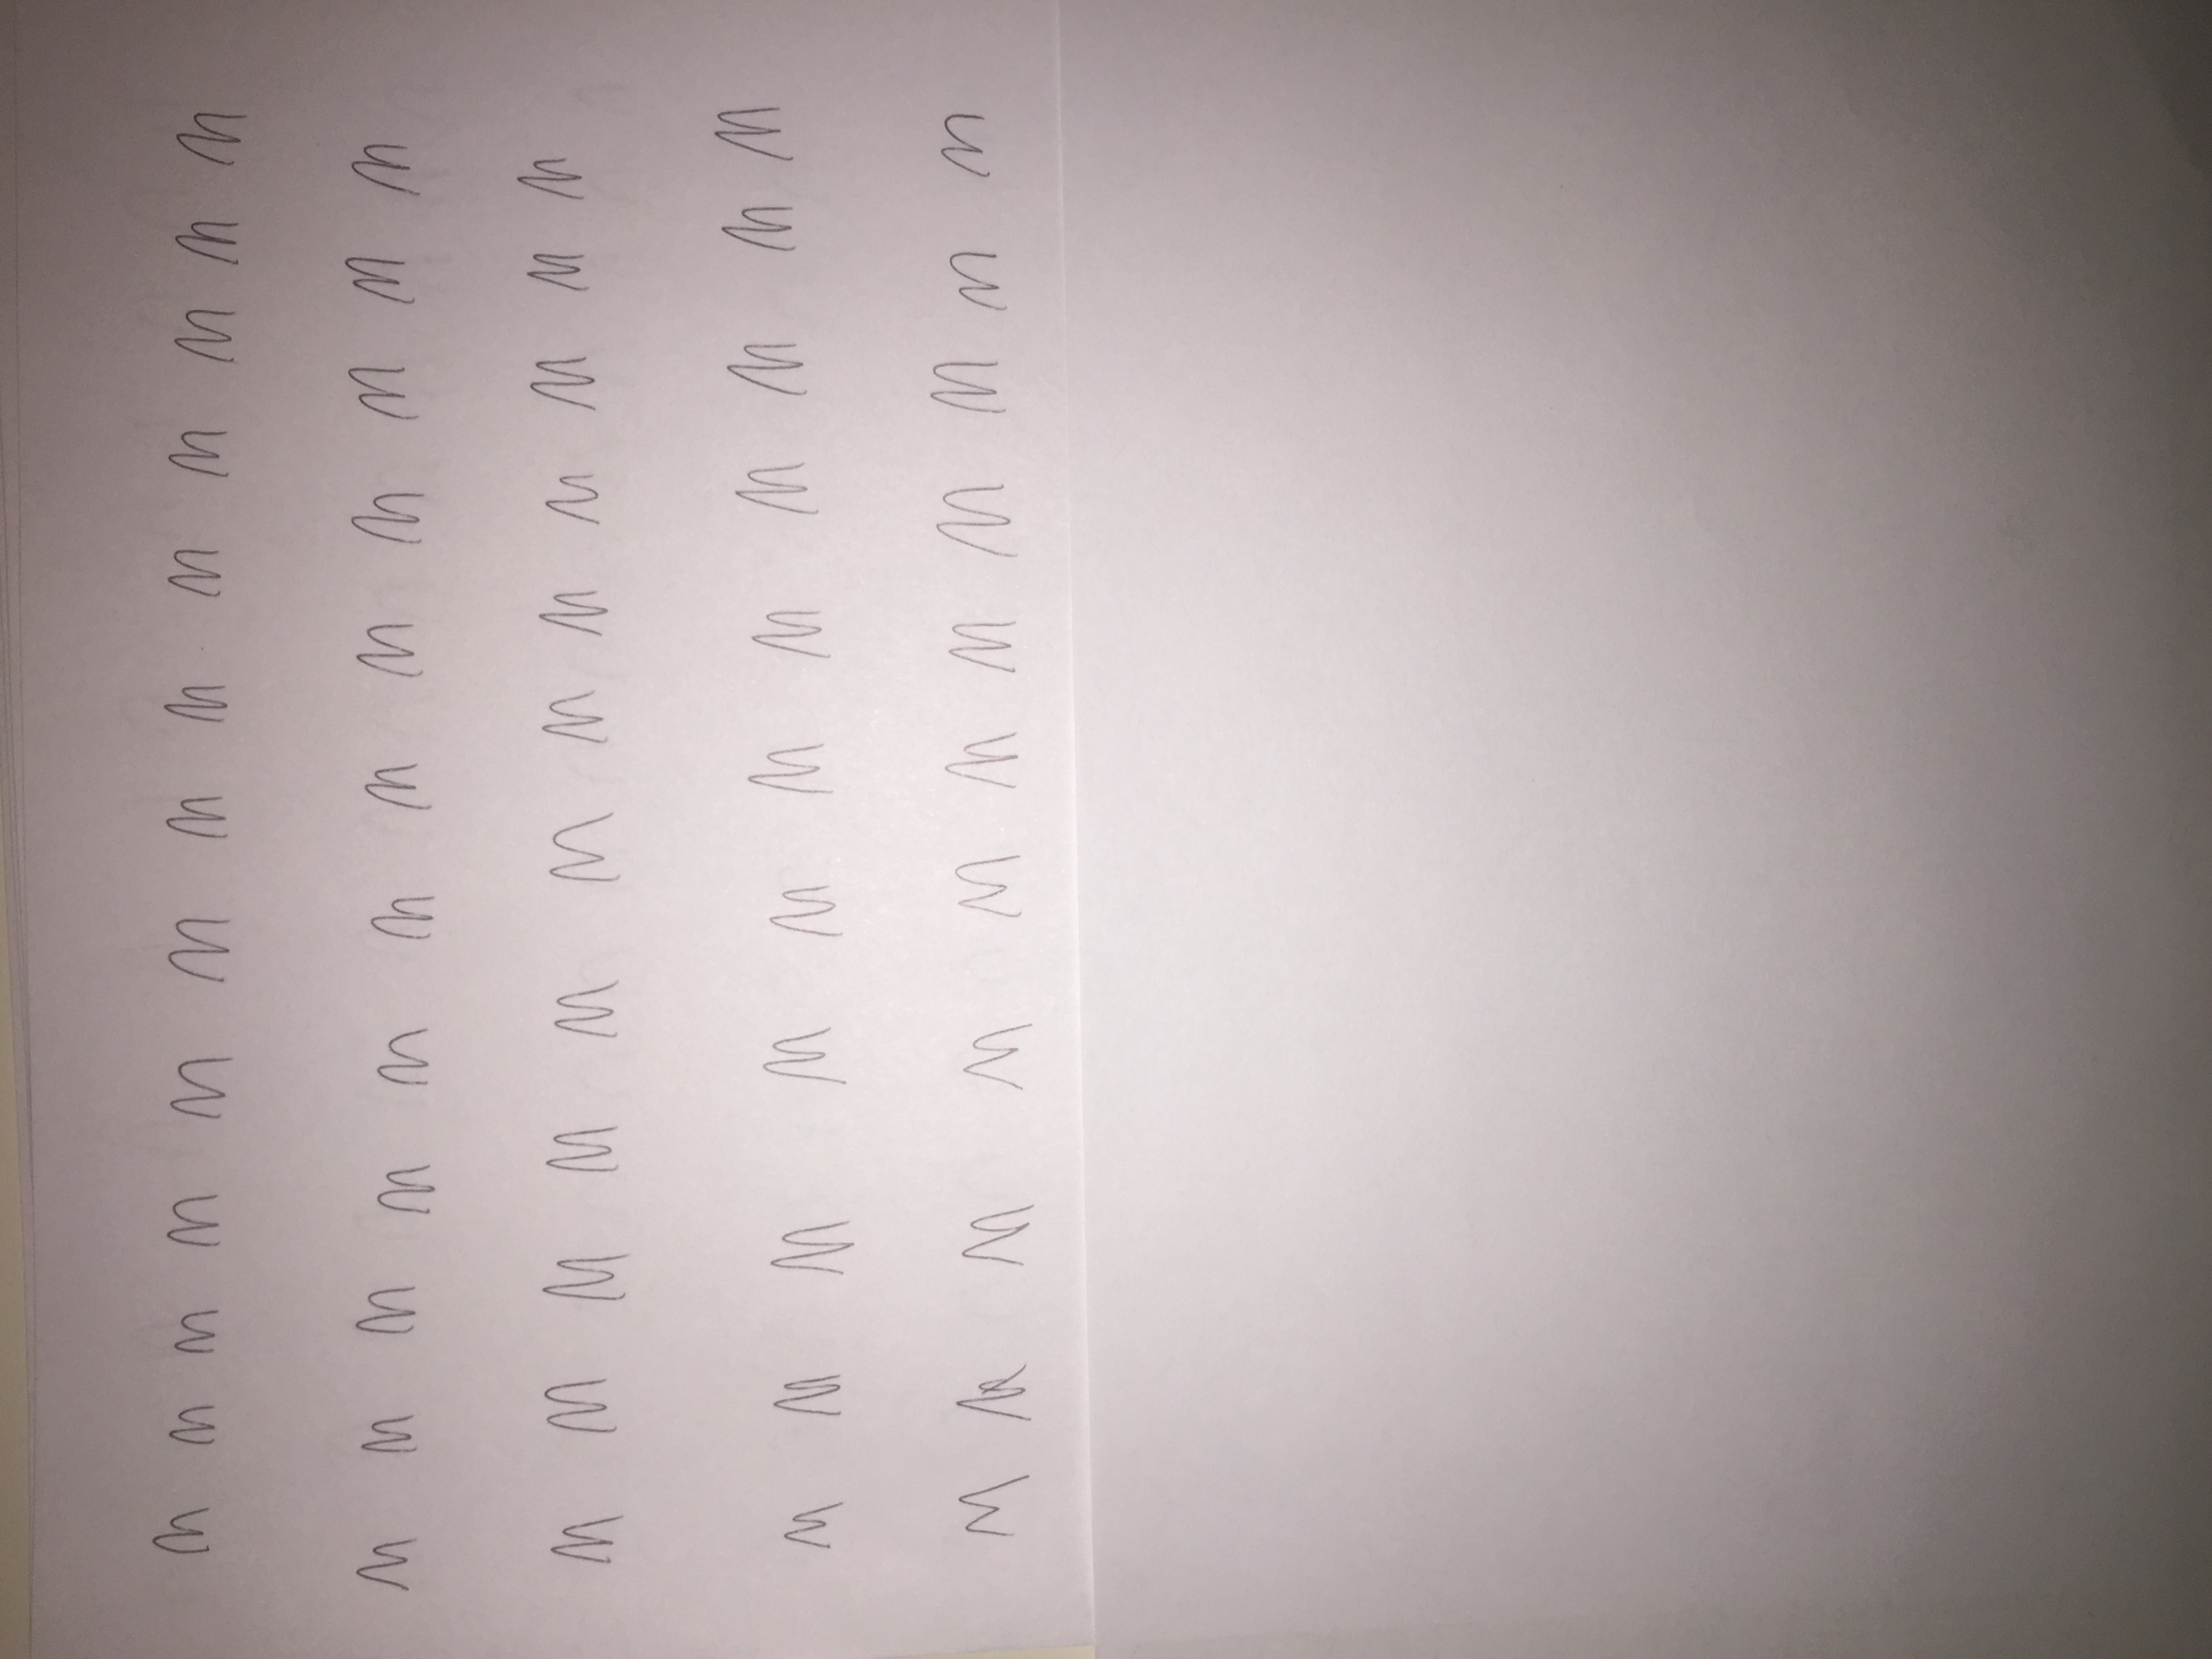 m m m m m m m m m m m m m
m m m m m m m m m m m m
m m m m m m m m m m m m
m m m m m m m m m m m
m m m m m m m m m m m